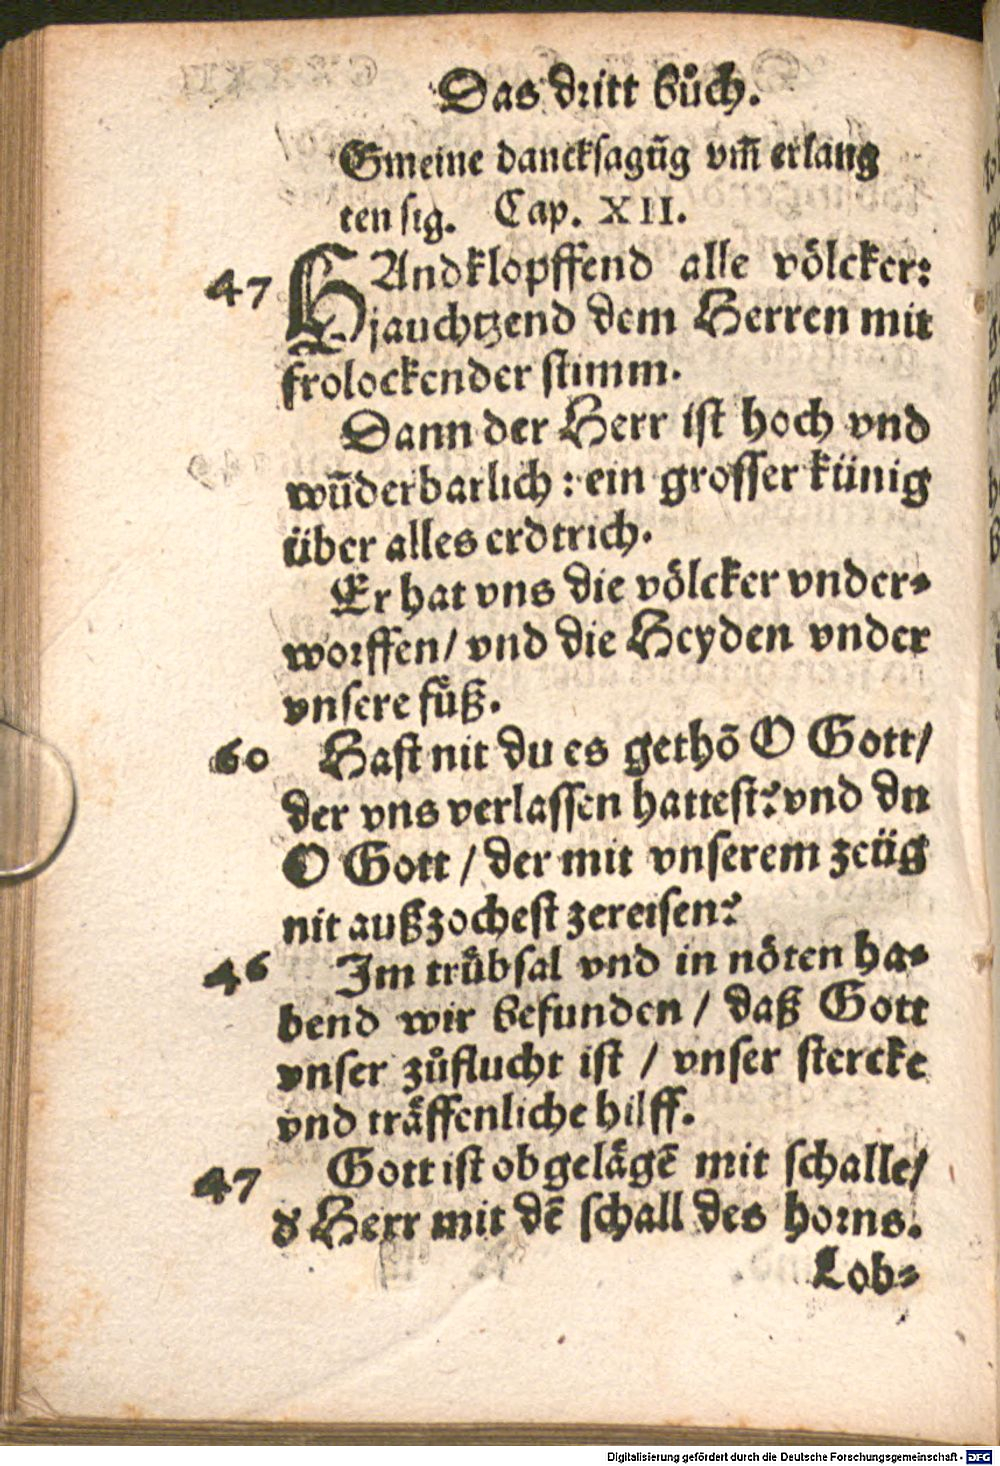 Das dritt bůch.
Gmeine dancksagūg vm̄ erlang
ten sig. Cap. XII.
47 HAndklopffend alle völcker:
jauchtzend dem Herren mit
frolockender stimm.
Dann der Herr ist hoch vnd
wūderbarlich: ein grosser künig
über alles erdtrich.
Er hat vns die völcker vnder-
worffen/ vnd die Heyden vnder
vnsere fůß.
60 Hast nit du es gethō O Gott/
der vns verlassen hattest? vnd du
O Gott / der mit vnserem zeüg
nit außzochest zereisen?
46 Im trůbsal vnd in nöten ha-
bend wir befunden / daß Gott
vnser zůflucht ist / vnser stercke
vnd träffenliche hilff.
47 Gott ist obgelägē mit schalle/
d' Herr mit dē schall des horns.
Lob-
Digitalisierung gefördert durch die Deutsche Forschungsgemeinschaft - DFG